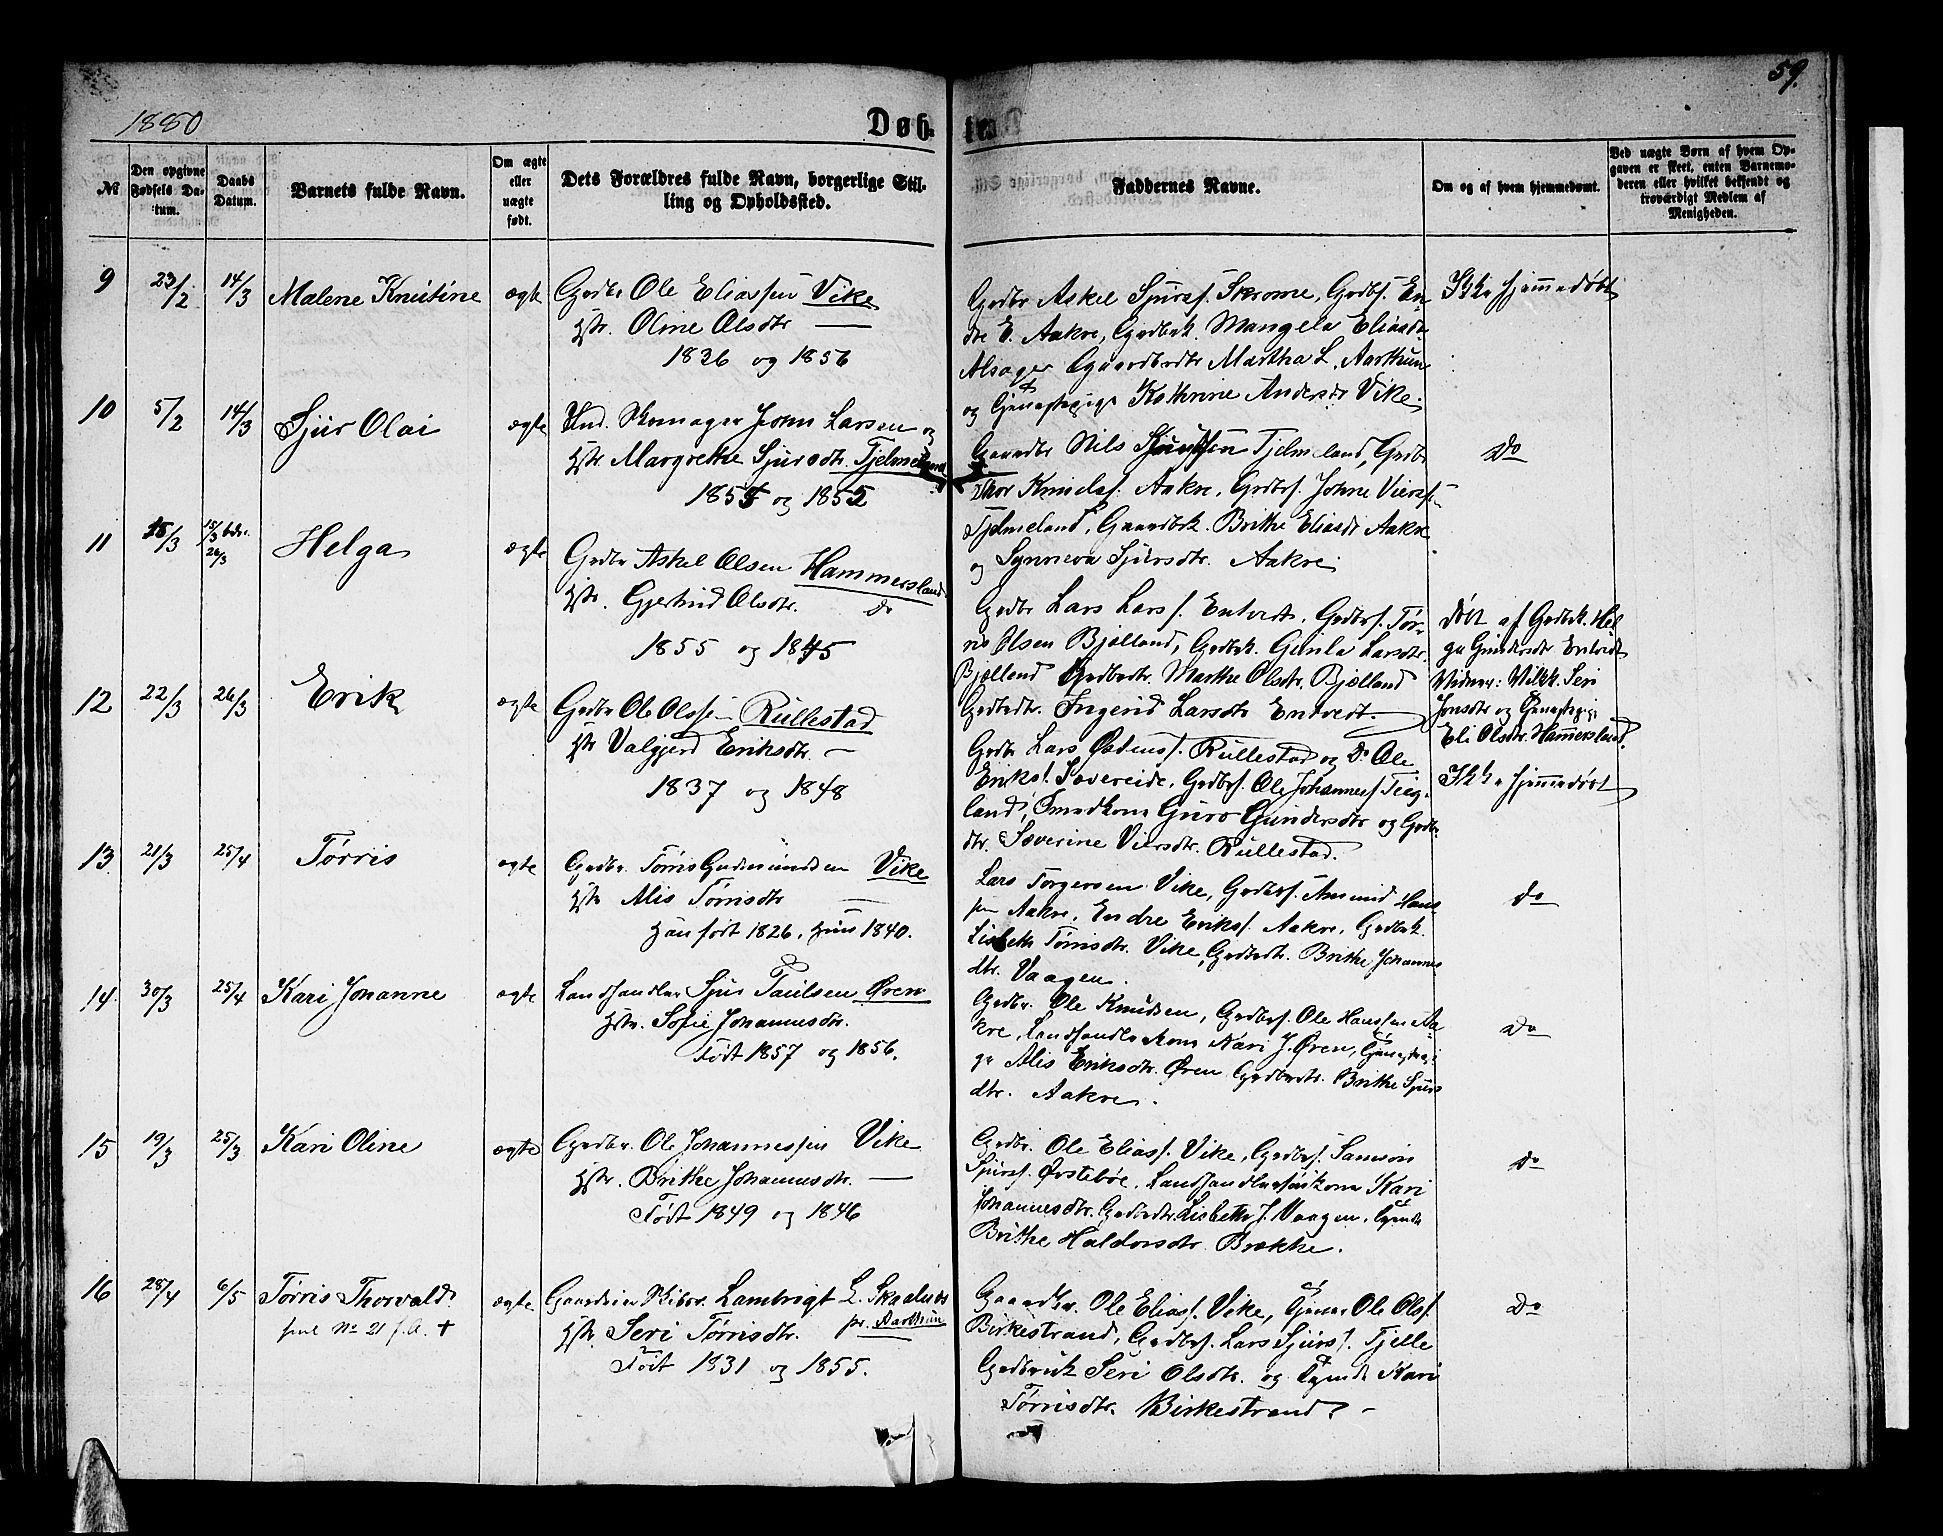 59.
1880
Døb-
te.
№
Den opgivne Fødsels Datum.
Daabs Datum.
Barnets fulde Navn.
Om ægte eller uægte født.
Dets Forældres fulde Navn, borgerlige Stilling og Opholdssted.
Faddernes Navne.
Om og af hvem hjemmedøbt.
Ved uægte Børn af hvem Opgaven er skeet, enten Barnemoderen eller hvilket bekjendt og troværdigt Medlem af Menigheden.
9 23/2 14/3 Malene Knutine ægte Grdbr Ole Eliassen Vike
Hstr. Oline Olsdtr —
1836 og 1856
Grdbr Askel Sjurss. Skromme, Grdbrs. En-
dre E. Aakre, Grdbrk. Mangela Eliasdtr
Alsager Gaardbrdtr Martha L. Aarthun
og Kathrine Andersdtr Vike.
Ikke hjemmedøbt
10 5/2 14/3 Sjur Olai ægte Ind. Skomager John Larsen og
Hstr. Margrethe Sjursdtr. Tjelmeland
og 1852
Gaardbr Nils Tjelmeland, Grdbr
Thor Knudss. Aakre, Grdbrs. Johne Vierss.
Tjelmeland, Gaardbrk. Brithe Eliasdtr Aakre
og Synneva Sjursdtr. Aakre.
Do
11 18/3 18/3 26/3 Helga ægte Grdbr Askel Olsen Hammersland
Hstr. Gjertrud Olsdtr. do
1855 og 1845
Grdbr Lars Larss. Entvedt, Grdbrs. Tør-
ris Olsen Bjølland, Grdbrk. Gunla Larsdtr.
Bjølland Grdbrdtr. Marthe Olsdtr. Bjølland
Grdbrdtr. Ingerid Larsdtr Entvedt.
Døbt af Grdbrk. Hel-
ga Gundersdtr Entvedt
Vidner: Seri
Jonsdtr og Tjenestepige
Eli Olsdtr. Hammersland.
12 22/3 26/3 Erik ægte Grdbr Ole Olssen Rullestad
Hstr Valgjerd Eriksdtr. —
1837 og 1848
Grdbr Lars Rullestad og Do Ole
Erikss. Søvereide, Grdbrs. Ole Johanness
land, Smedkone Guro Gundersdtr og Grdbr
dtr. Severine Viersdtr. Rullestad.
Ikke hjemmedøbt
13. 21/3 25/4 Tørris ægte Grdbr. Tørris Gudmundsen Vike
Hstr Alis Tørrisdtr —
Han født 1826, Hun 1840.
Lars Torgersen Vike, Grdbrs. Amund Hans
sen Aakre, Endre Erikss. Aakre, Grdbrk.
Lisbeth Tørrisdtr. Vike, Grdbrdtr. Brithe Johannes
dtr. Vaagen.
do
14. 30/3 25/4 Kari Johanne ægte Landhandler Sjur Paulsen Øren
Hstr. Sofie Johannesdtr.
Født 1857 og 1856.
Grdbr. Ole Knudsen, Grdbrs. Ole Hanssen Aa-
kre, Landhandlerkone Kari J. Øren, Tjenestepi-
ge Alis Eriksdtr. Øren Grdbrdtr. Brithe Sjurs
dtr. Aakre.
Do
15 19/3 25/3 Kari Oline ægte Grdbr. Ole Johannessen Vike
Hstr. Brithe Johannesdtr. —
Født 1849 og 1846
Grdbr. Ole Eliass. Vike, Grdbrs. Samson
Sjurss. Ørstebøe, Kari
Johannesdtr. Grdbrdtr. Lisbeth J. Vaagen,
Brithe Haldorsdtr. Brekke.
Do
16 28/4 6/5 Tørris Thorvald ægte Lambrigt L. Skaaluv
No 21 f. A. + pr. Aarthun
Hstr. Seri Tørrisdtr.
Født 1831 og 1855.
Gaardbr. Ole Eliass. Vike, Tjener Ole Olss.
Birkestrand, Grdbrs. Lars Sjurss. Tjelle
Grdbruk Seri Olsdtr. og Kari
Tørrisdtr. Birkestrand. —
Do